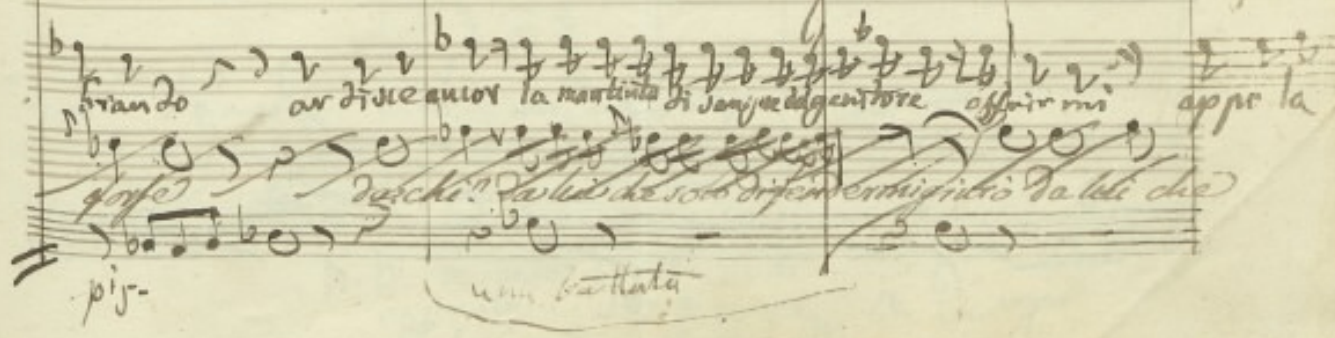 friando ardisce ancor la man tinta di sangue del genitore offrirmi appr la
forse da chi? da lui che solo difendermi giurò da lui che
piz-
una battuta